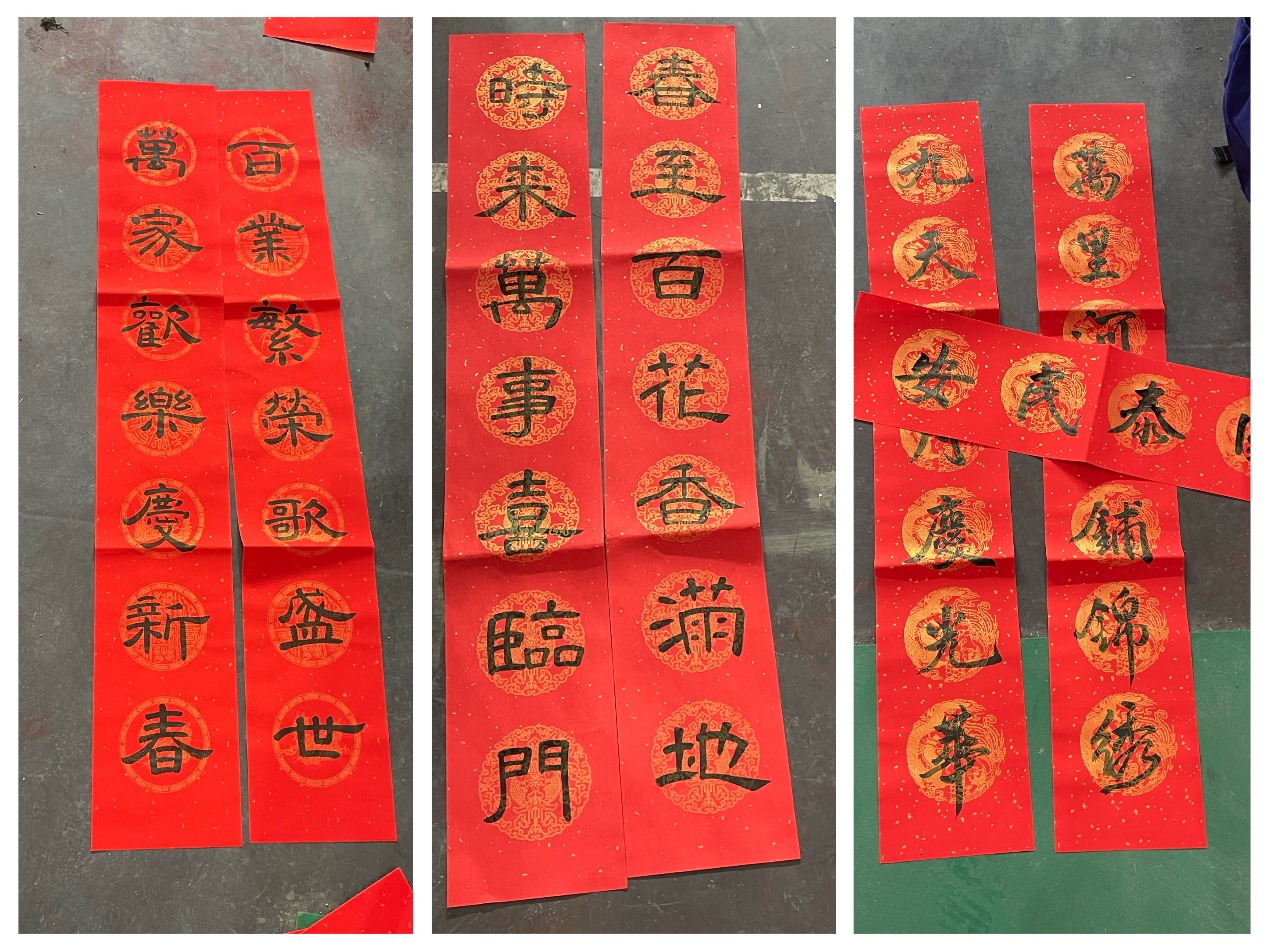 百業繁榮歌盛世
萬家歡樂慶新春
春至百花香滿地
時来萬事喜臨門
萬里河鋪錦綉
九天月慶光華
泰民安